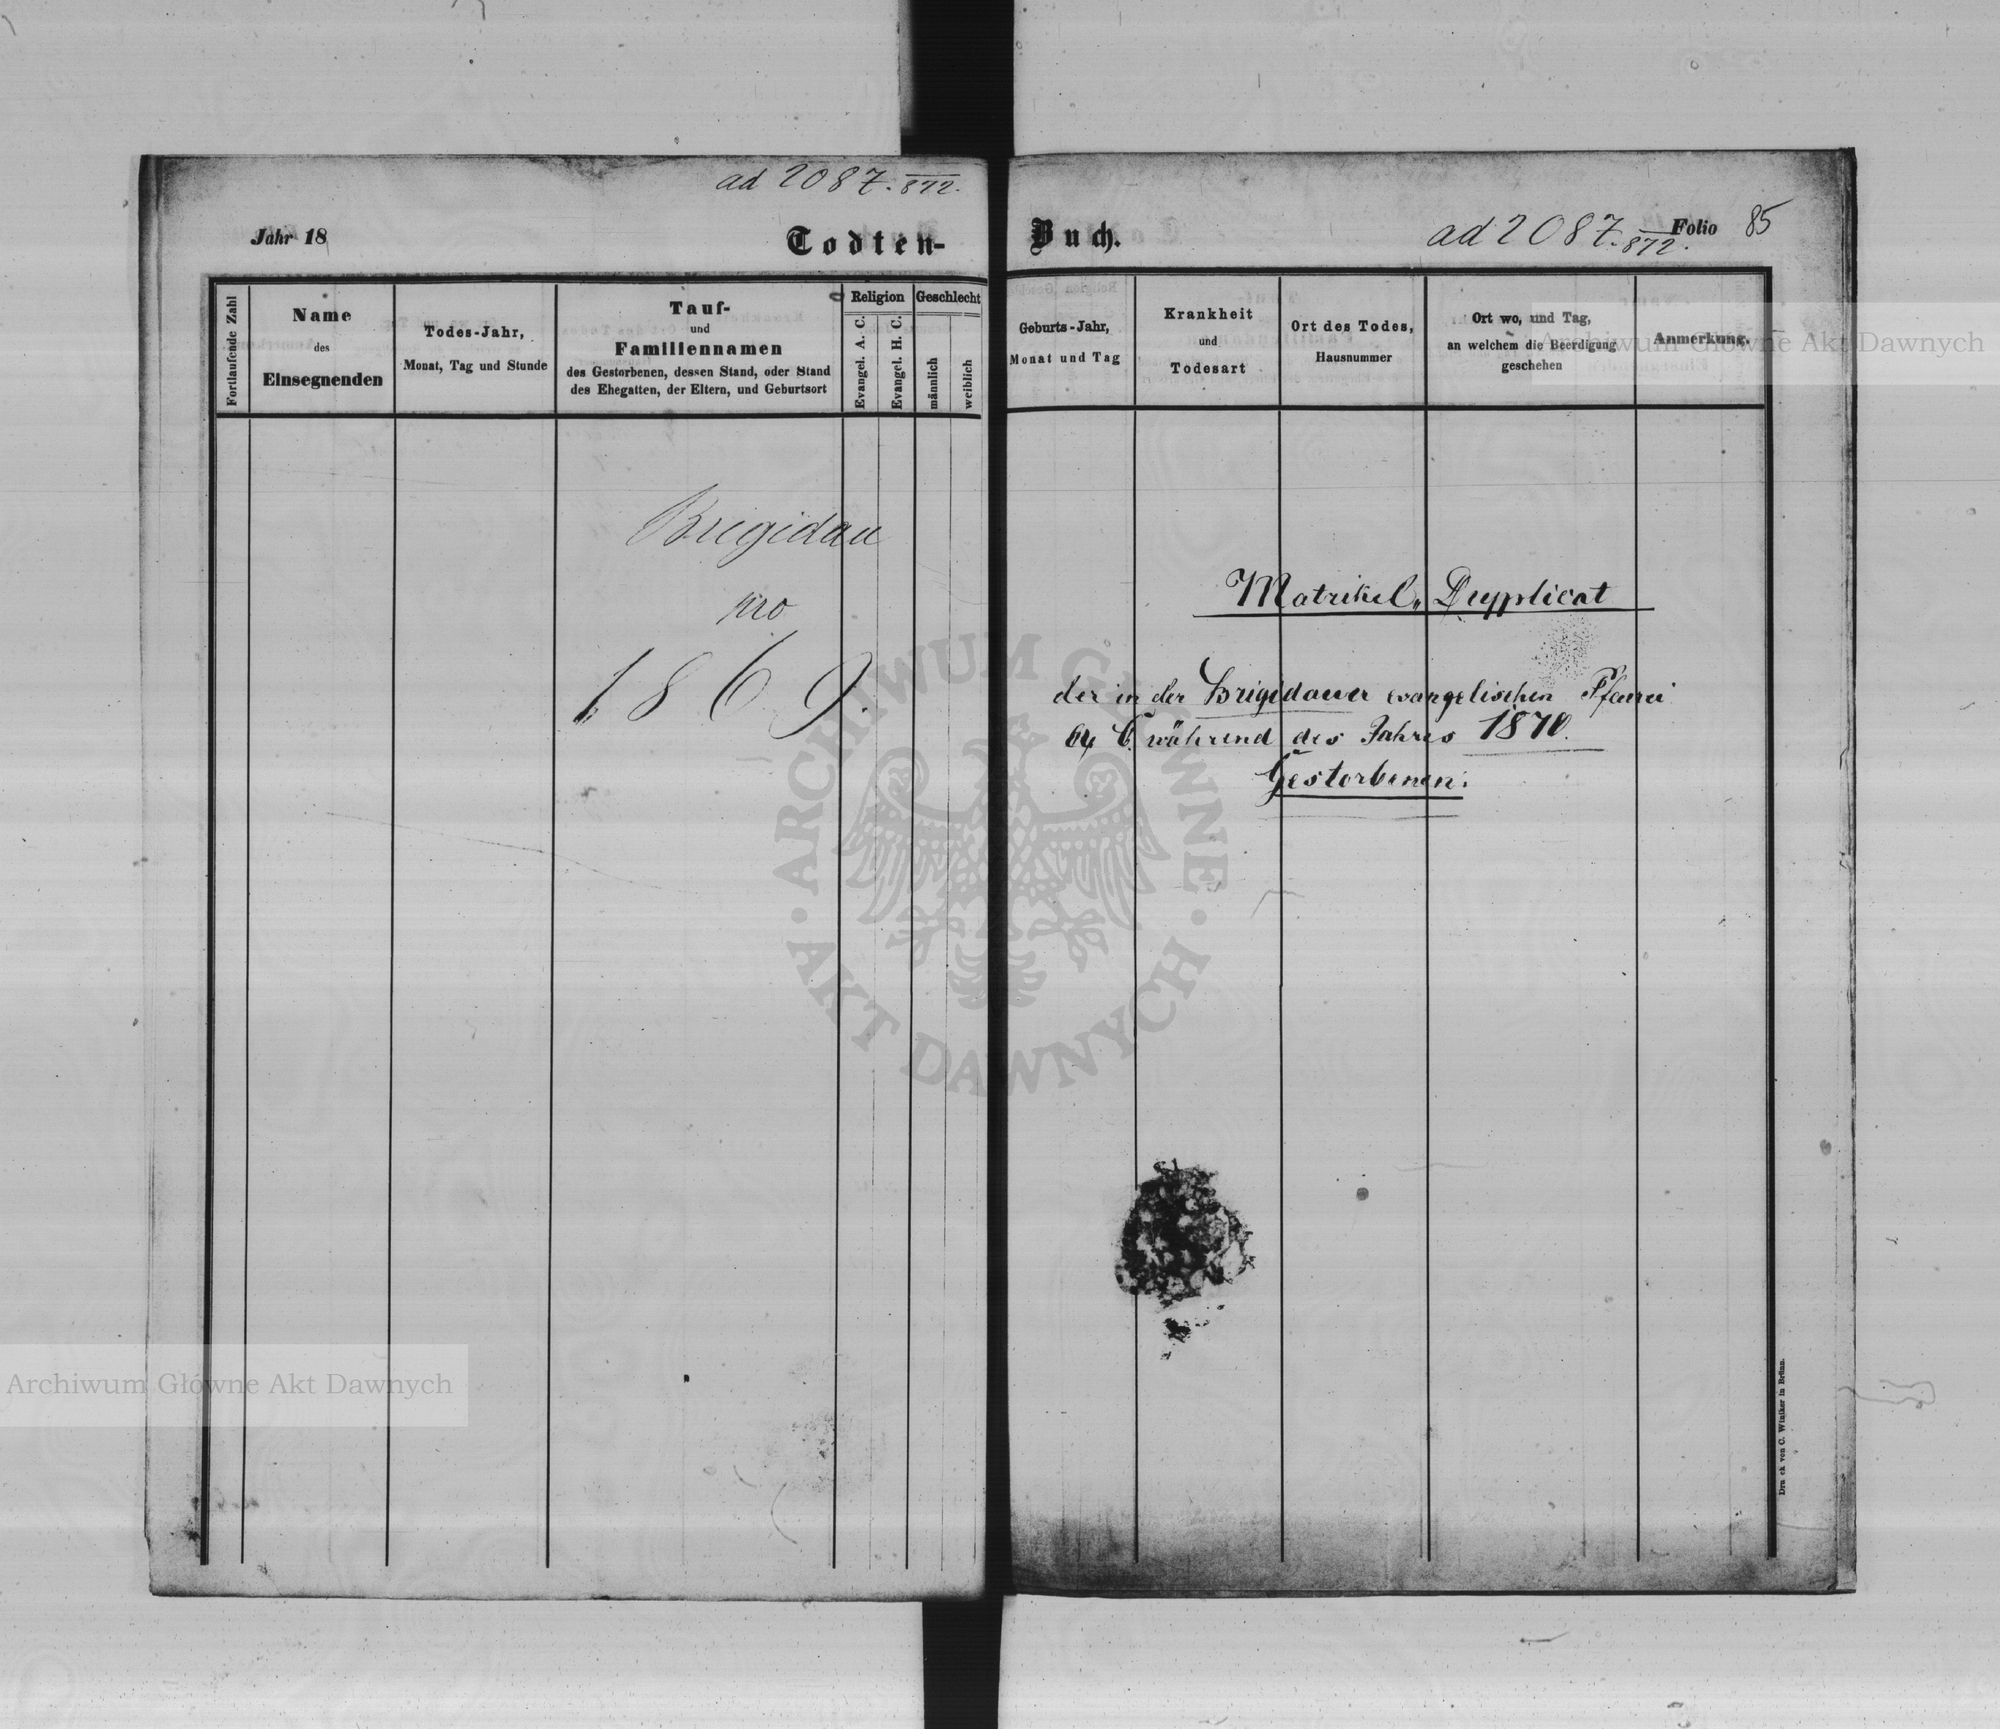 ad 2087.872.
Jahr 18
Todten-
Fortlaufende Zahl
Name
des
Einsegnenden
Todes-Jahr,
Monat, Tag und Stunde
Tauf-
und
Familiennamen
des Gestorbenen, dessen Stand, oder Stand
des Ehegatten, der Eltern, und Geburtsort
Religion
Evangel. A. C.
Evangel. H. C.
Geschlecht
männlich
weiblich
Brigidau
pro
1869.
Buch.
ad 2087.872.
Folio 85
Geburts-Jahr,
Monat und Tag
Krankheit
und
Todesart
Ort des Todes,
Hausnummer
Ort wo, und Tag,
an welchem die Beerdigung
geschehen
Anmerkung.
Matrikel„Dupplicat
der in der Brigidauer evangelischen Pfarrei
während des Jahres 1870.
Gestorbenen.
Druck von C. Winiker in Brünn.
Archiwum Główne Akt Dawnych
ARCHIWUM GŁÓWNE
AKT DAWNYCH
Archiwum Główne Akt Dawnych